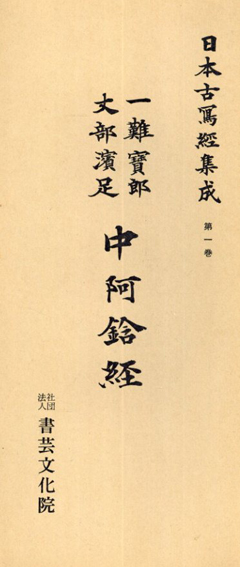 日本古寫經集成
第一巻
一難寶郎
丈部濱足
中阿鋡経
社団法人
書芸文化院